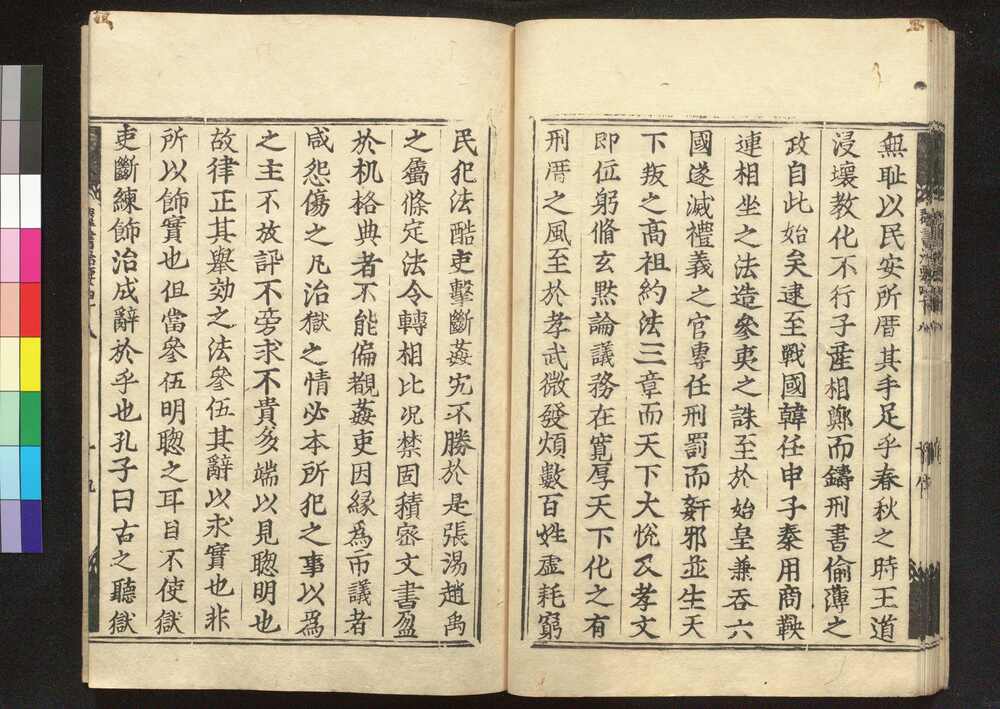 無耻以民安所厝其手足乎春秋之時王道
浸壞教化不行子產相鄭而鑄刑書偷薄之
政自此始矣逮至戰國韓任申子秦用商鞅
連相坐之法造參夷之誅至於始皇兼吞六
國遂滅禮義之官專任刑罰而姧邪並生天
下叛之高祖約法三章而天下大悅及孝文
即位躬脩玄黙論議務在寬厚天下化之有
刑厝之風至於孝武微發煩數百姓虛耗窮
民犯法酷吏擊斷姦宄不勝於是張湯趙禹
之屬條定法令轉相比况禁固積密文書盈
於机格典者不能徧覩姦吏因緣為市議者
咸怨傷之凡治獄之情必本所犯之事以為
之主不放訊不旁求不貴多端以見聰明也
故律正其舉劾之法參伍其辭以求實也非
所以飾實也但當參伍明聰之耳目不使獄
吏斷練飾治成辭於乎也孔子曰古之聽獄